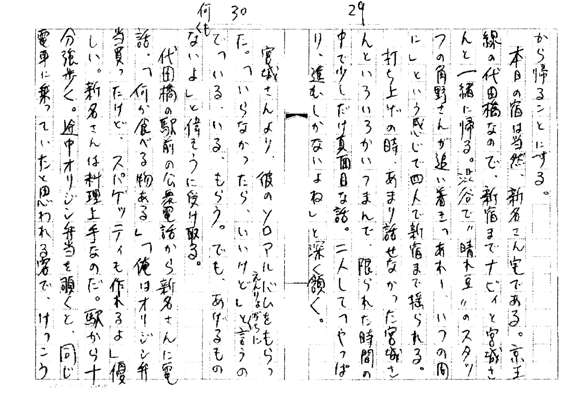 29
から帰ることにする。
本日の宿は当然、新名さん宅である。京王
線の代田橋なので、新宿までナビィと宮城さ
んと一緒に帰る。渋谷で"晴れ豆"のスタッ
フの角野さんが追い着き「あれー、いつの間
に」という感じで四人で新宿まで揺られる。
打ち上げの時、あまり話せなかった宮城さ
んといろいろかいつまんで、限られた時間の
中で少しだけ真面目な話。二人して「やっぱ
り、進むしかないよね」と深く頷く。
30
宮城さんより、彼のソロアルバムをもらっ
た。「いらなかったら、いいけど」とえんりょがちに言うの
で「いる、いる、もらう。でも、あげるもの
何もないよ」と偉そうに受け取る。
代田橋の駅前の公衆電話から新名さんに電
話、「何か食べる物ある」「俺はオリジン弁
当買ったけど、スパゲッティも作れるよ」優
しい。新名さんは料理上手なのだ。駅から十
分強歩く。途中オリジン弁当を覗くと、同じ
電車に乗っていたと思われる客で、けっこう